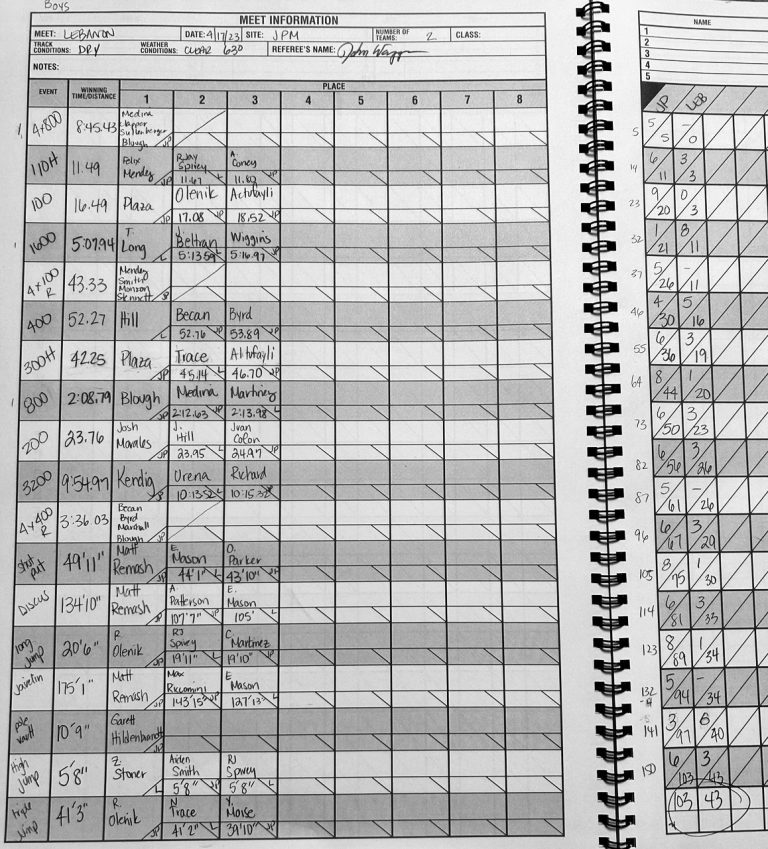 Boys
MEET INFORMATION
MEET: LEBANON DATE: 4/17/23 SITE: JPM NUMBER OF TEAMS: 2 CLASS:
TRACK CONDITIONS: DRY WEATHER CONDITIONS: CLEAR 63° REFEREE'S NAME:
NOTES:
EVENT WINNING TIME/DISTANCE PLACE
1 2 3 4 5 6 7 8
4x800 8:45.43 Medina Clapper Sullenberger Blough JP
110H 11.49 Felix Mendez JP RJay Spivey 11.67 L A. Coney 11.82 JP
100 16.49 Plaza JP Olenik 17.08 JP Altufayli 18.52 JP
1600 5:07.94 T. Long L J. Beltran 5:13.59 L Wiggins 5:16.97 JP
4x100 R 43.33 Mendez Smith Monzon Stennett JP
400 52.27 Hill L Becan 52.76 JP Byrd 53.89 JP
300H 42.25 Plaza JP Trace 45.14 L Altufayli 46.70 JP
800 2:08.79 Blough JP Medina 2:12.63 JP Martinez 2:13.98 L
200 23.76 Josh Morales JP J. Hill 23.95 L Juan Colon 24.97 JP
3200 9:54.97 Kendig JP Urena 10:13.52 L Richard 10:15.32 JP
4x400 R 3:36.03 Becan Byrd Marshall Blough JP
Shot put 49'11" Matt Remash JP E. Mason 44'1" L O. Parker 43'10" JP
DISCUS 134'10" Matt Remash JP A. Patterson 107'7" JP E. Mason 105' L
long jump 20'6" R. Olenik JP RJ Spivey 19'11" L C. Martinez 19'10" JP
Javelin 175'1" Matt Remash JP Max Riccomini 143'15" JP E Mason 127'13" L
pole vault 10'9" Garett Hildenbrandt JP
High Jump 5'8" Z. Stoner L Aiden Smith 5'8" JP RJ Spivey 5'8" L
triple Jump 41'3" R. Olenik JP N Trace 41'2" L Y. Morse 39'10" JP
NAME
1
2
3
4
5
JP LEB
5 5/5 -/0
14 6/11 3/3
23 9/20 0/3
32 1/21 8/11
37 5/26 -/11
46 4/30 5/16
55 6/36 3/19
64 8/44 1/20
73 6/50 3/23
82 6/56 3/26
87 5/61 -/26
96 6/67 3/29
105 8/75 1/30
114 6/81 3/33
123 8/89 1/34
132 5/94 -/34
141 3/97 6/40
150 6/103 3/43
103 43